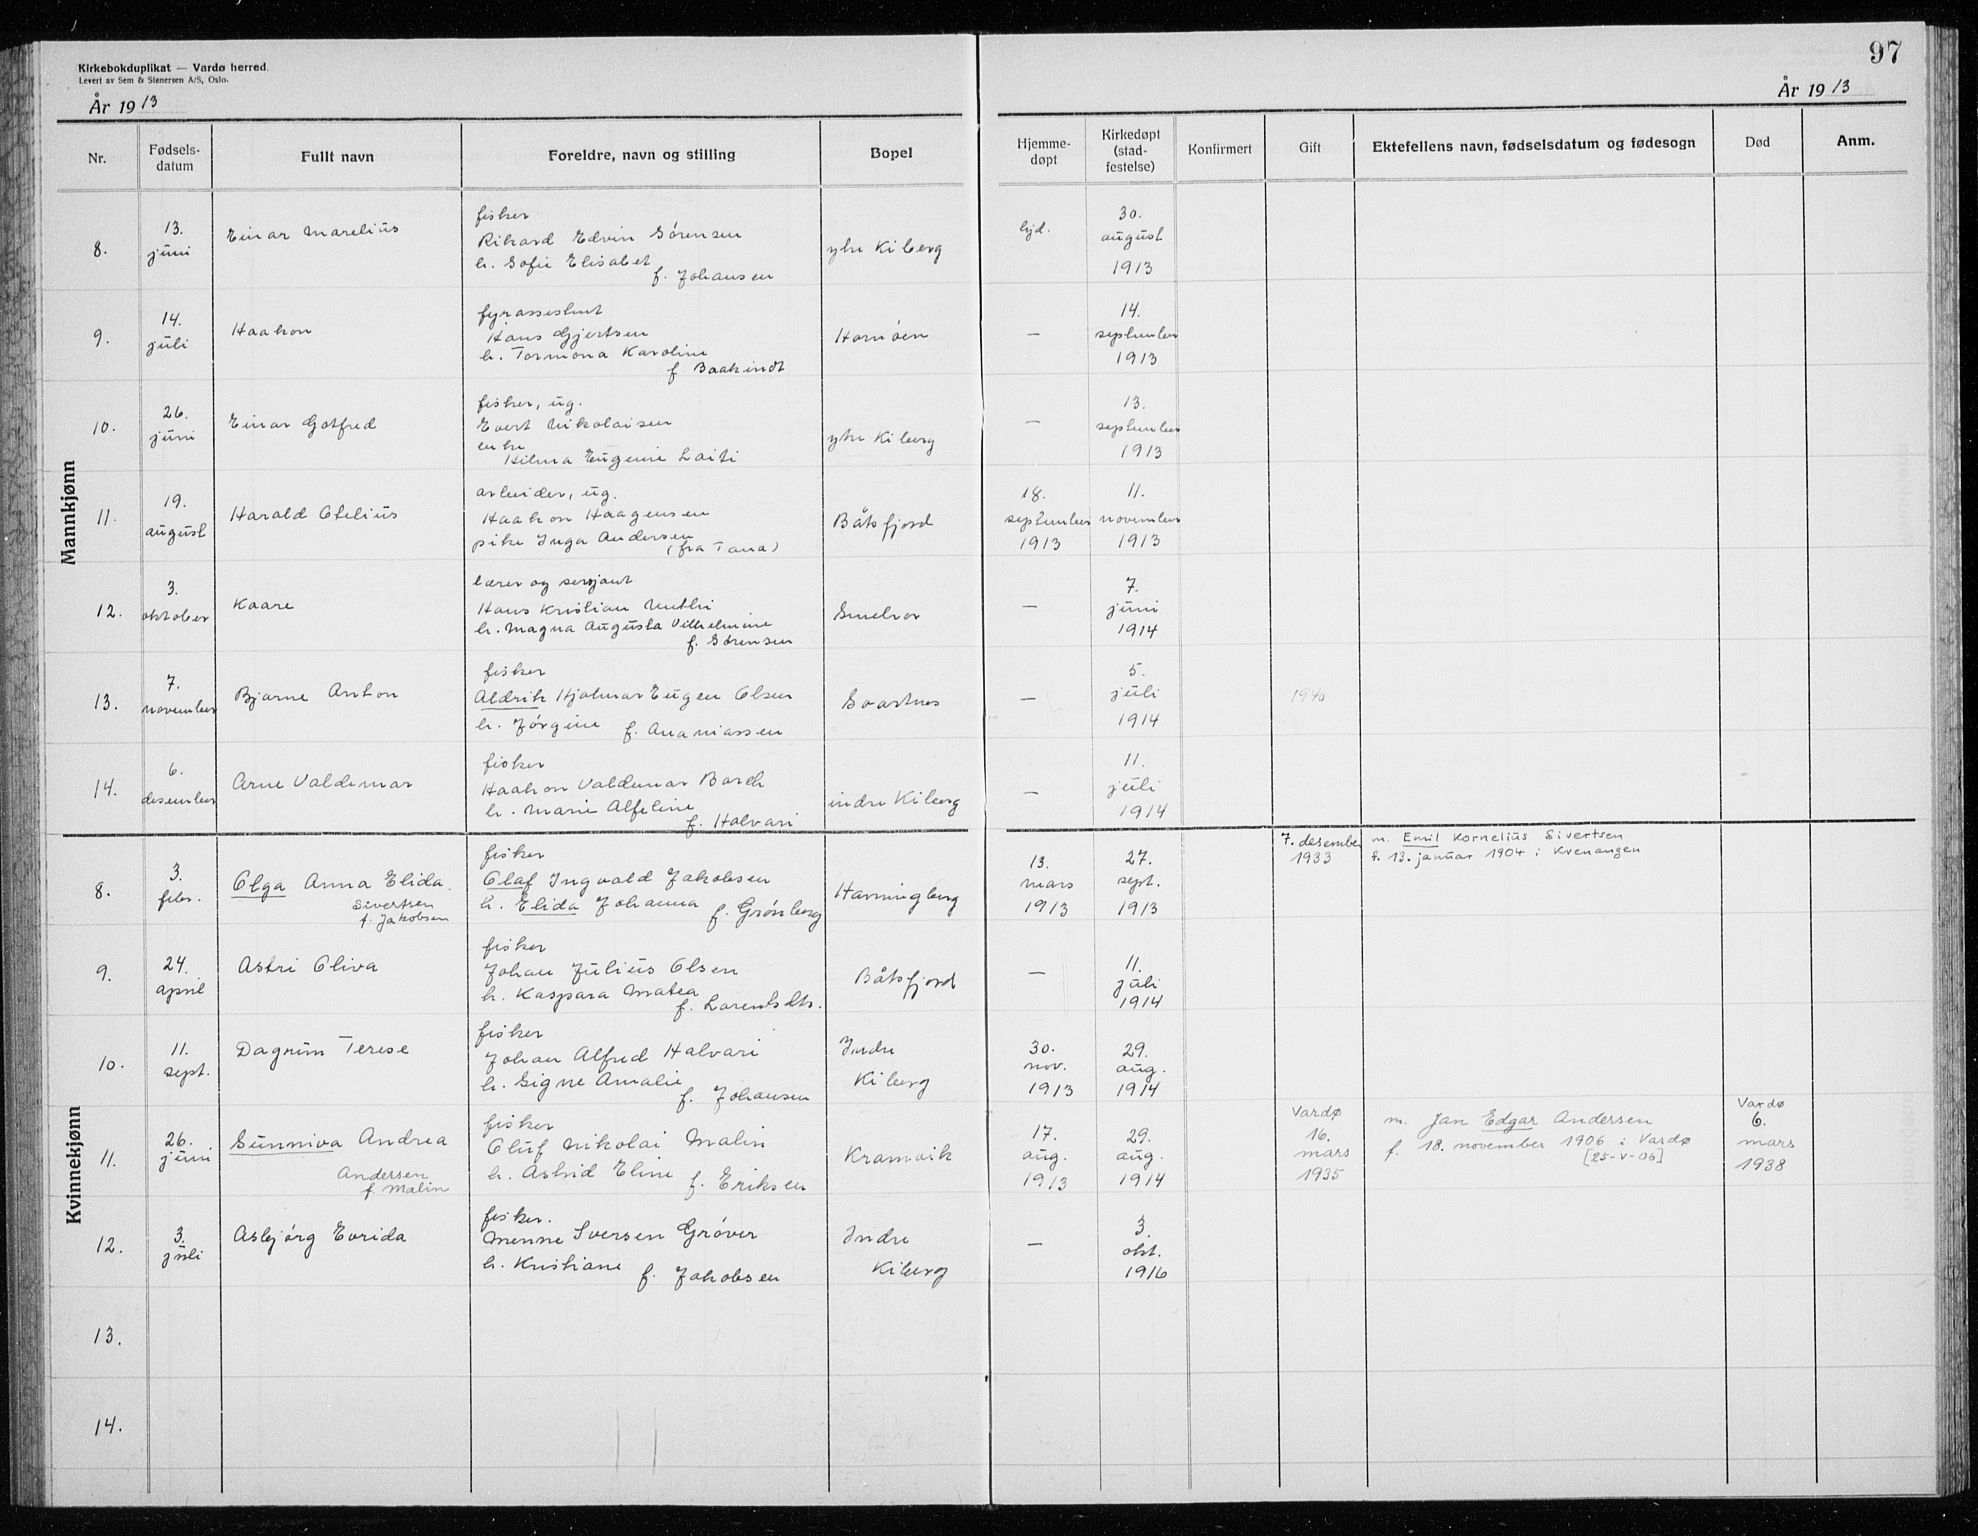 97
Kirkebokduplikat — Vardø herred.
Levert av Sem & Stenersen A/S, Oslo.
År 1913
År 1913
Nr. Fødsels-datum Fullt navn Foreldre, navn og stilling Bopel Hjemme-døpt Kirkedøpt (stad-festelse) Konfirmert Gift Ektefellens navn, fødselsdatum og fødesogn Død Anm.
Mannkjønn
8. 13. juni Einar Marelius
fisker
Rikard Edvin Sørensen
h. Sofie Elisabet
f. Johansen
ytre Kiberg hjd. 30. august 1913
9. 14. juli Haakon
fyrassistent
Hans Gjertsen
h. Tormona Karoline
f. Baakindt
Hornøen — 14. september 1913
10. 26. juni Einar Gotfred
fisker, ug.
Evert Nikolaisen
enke
Hilma Eugenie Laiti
ytre Kiberg — 13. september 1913
11. 19. august Harald Ofelius
arbeider, ug.
Haakon Haagensen
pike Inga Andersen
(fra Tana)
Båtsfjord 18. september 1913 11. november 1913
12. 3. oktober Kaare
lærer og serjant
Hans Kristian
h. Magna Augusta Vilhelmine
f. Sørensen
— 7. juni 1914
13. 7. november Bjarne Anton
fisker
Aldrik Hjalmar Eugen Olsen
h. Jørgine f. Ananiassen
Svartnes — 5. juli 1914 1940
14. 6. desember Arne Valdemar
fisker
Haakon Valdemar Borch
h. Marie Alfeline
f. Halvari
indre Kiberg — 11. juli 1914
Kvinnekjønn
8. 3. febr. Olga Anna Elida
Sivertsen
f. Jakobsen
fisker
Olaf Ingvald Jakobsen
h. Elida Johanna f. Grønberg
Havningberg 13. mars 1913 27. sept. 1913 7. desember 1933
m. Emil Kornelius Sivertsen
f. 13. januar 1904 i Kvenangen
9. 24. april Astri Oliva
fisker
Johan Julius Olsen
h. Kaspara Matea
f. Larentsdtr.
Båtsfjord — 11. juli 1914
10. 11. sept. Dagrun Terese
fisker
Johan Alfred Halvari
h. Signe Amalie
f. Johansen
Indre Kiberg 30. nov. 1913 29. aug. 1914
11. 26. juni Gunniva Andrea
Andersen
f. Malin
fisker
Oluf Nikolai Malin
h. Astrid Eline f. Eriksen
Kramvik 17. aug. 1913 29. aug. 1914 Vardø 16. mars 1935
m. Jan Edgar Andersen
f. 18. november 1906 i Vardø
[25-V-06]
Vardø 6. mars 1938
12. 3. juli Asbjørg Evrida
fisker.
Menne Iversen Grøver
h. Kristiane f. Jakobsen
Indre Kiberg — 3. okt. 1916
13.
14.